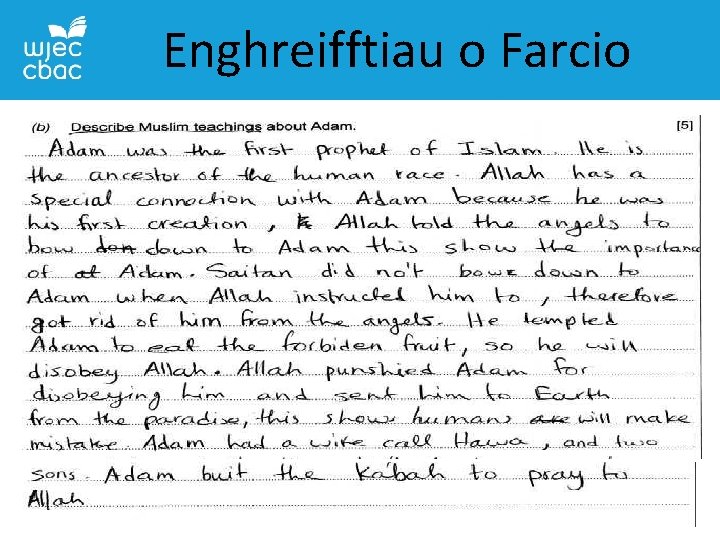 wjec
cbac
Enghreifftiau o Farcio
(b) Describe Muslim teachings about Adam. [5]
Adam was the first prophet of Islam. He is
the ancestor of the human race. Allah has a
special connection with Adam because he was
his first creation, Allah told the angels to
bow down to Adam this show the importance
of Adam. Saitan did no't bow down to
Adam when Allah instructed him to, therefore
got rid of him from the angels. He tempted
Adam to eat the forbiden fruit, so he will
disobey Allah. Allah punshied Adam for
disobeying him and sent him to Earth
from the paradise, this show humans will make
mistake. Adam had a wife call Hawa, and two
sons. Adam buit the ka'bah to pray to
Allah